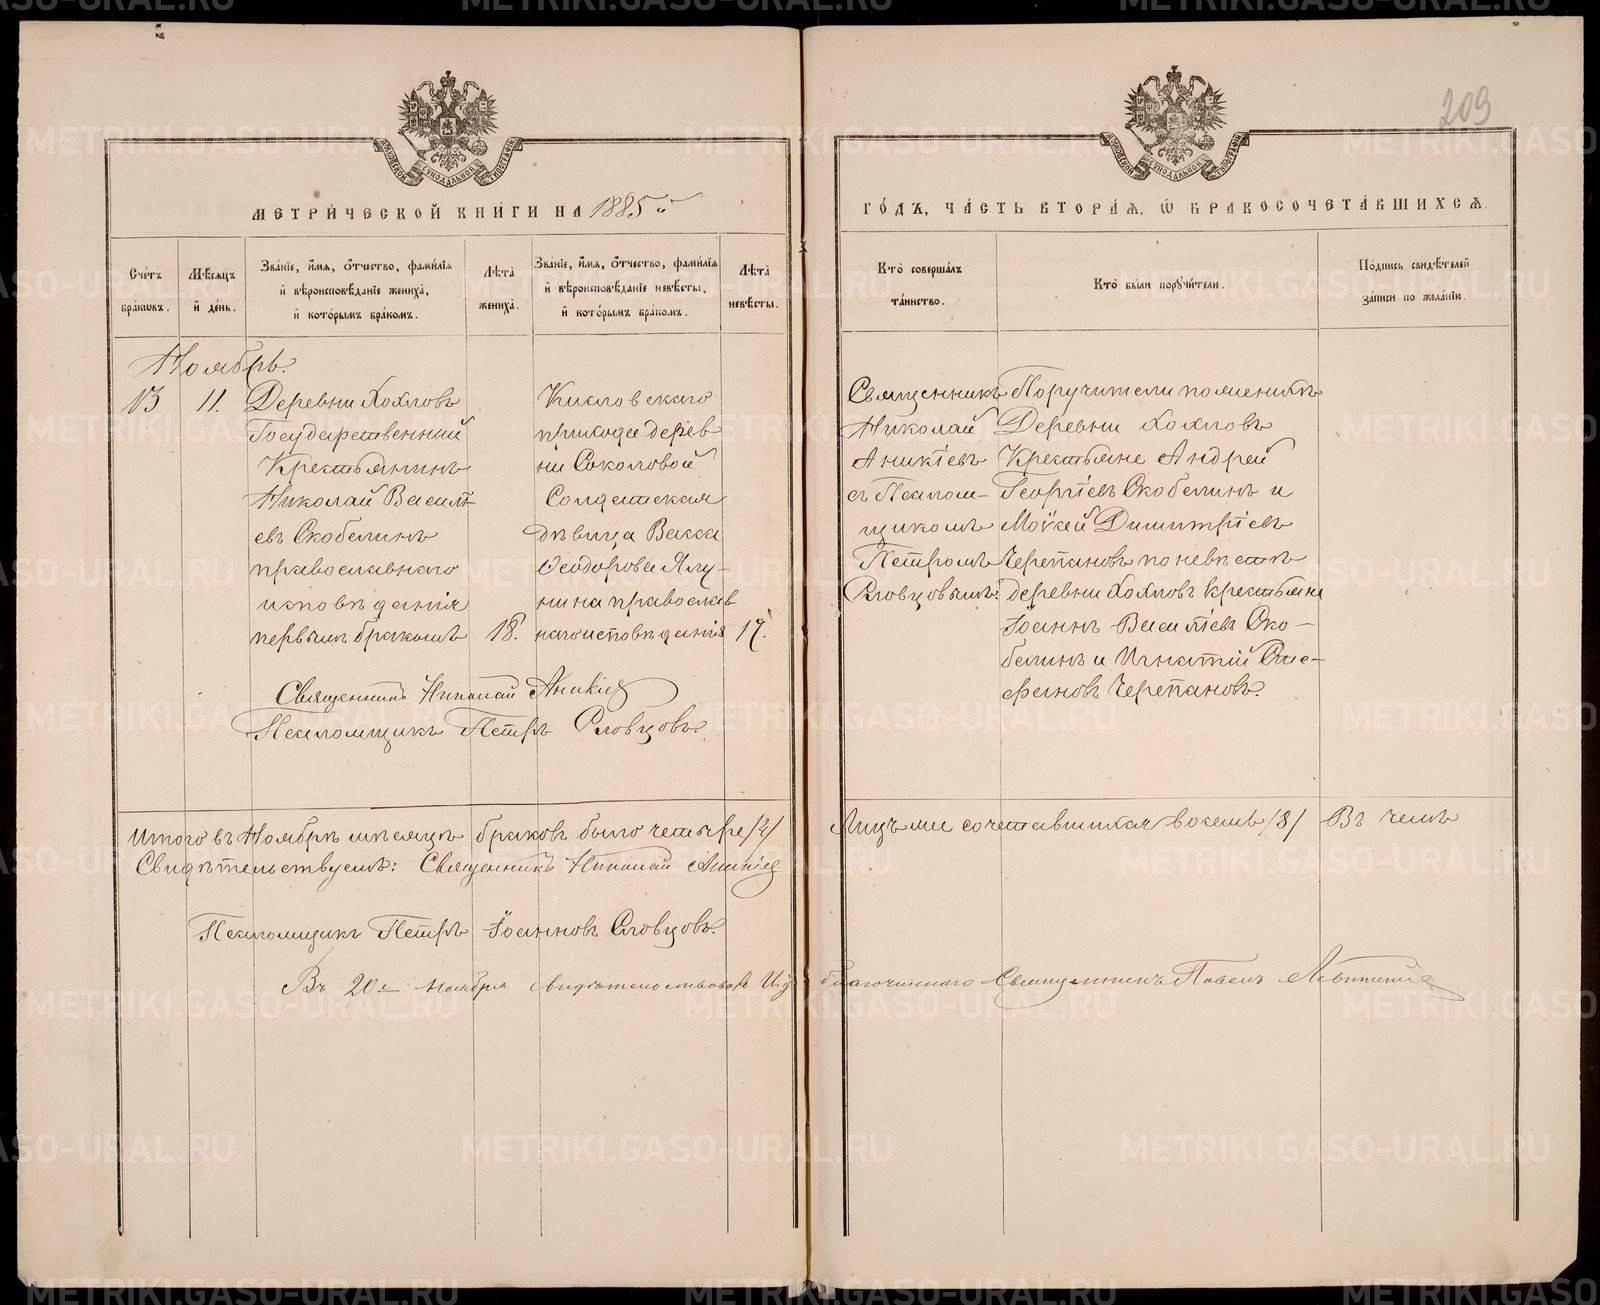 209
МЕТРИ́ЧЕСКОЙ КНИ́ГИ НА 1885й
ГО́ДЪ, ЧА́СТЬ ВТОРА́Я, Ѡ БРАКОСОЧЕТА́ВШИХСЯ.
Сче́тъ
бра́кωвъ.
Мѣ́сяцъ
и́ де́нь.
Зва́нїе, и́мя, о́тчество, фами́лїя
и́ вѣроисповѣ́данїе жениха́,
и́ кото́рымъ бра́комъ.
Лѣта̀
жениха̀.
Зва́нїе, и́мя, о́тчество, фами́лїя
и́ вѣроисповѣ́данїе невѣ́сты,
и́ кото́рымъ бра́комъ.
Лѣта̀
невѣ́сты.
Кто̀ соверша́лъ
та́инство.
Кто̀ бы́ли порꙋчи́тели.
По́дпись свидѣ́телей
за́писи по жела́нїю.
Ноябрь.
13
11.
Деревни Хохловъ
Государственный
Крестьянинъ
Николай Василь
евъ Скобелинъ
православнаго
исповѣданія
первымъ бракомъ
18.
Кисловскаго
прихода дерев
ни Соколовой
Солдатская
дѣвица Васса
Ѳеодорова Ялу-
нина православ
наго исповѣданія
17.
Священникъ
Николай
Аникіевъ
съ Псалом-
щикомъ
Петромъ
Словцовымъ.
Поручители по женихѣ
Деревни Хохловъ
Крестьяне Андрей
Георгіевъ Скобелинъ и
Моѵсей Димитріевъ
Черепановъ по невѣстѣ
деревни Хохловъ крестьяне
Іоаннъ Васильевъ Ско-
белинъ и Игнатій Сте-
фановъ Черепановъ.
Священникъ Николай Аникіев
Псаломщикъ Петръ Словцовъ.
Итого въ Ноябрѣ мѣсяцѣ браковъ было четыре /4/ Лицъ же сочетавшихся восемь /8/ Въ чемъ
Свидѣтельствуемъ: Священникъ Николай Аникіев
Псаломщикъ Петръ Іоанновъ Словцовъ.
Въ 20е ноября свидѣтельствовалъ И. д. благочиннаго Священникъ Павелъ